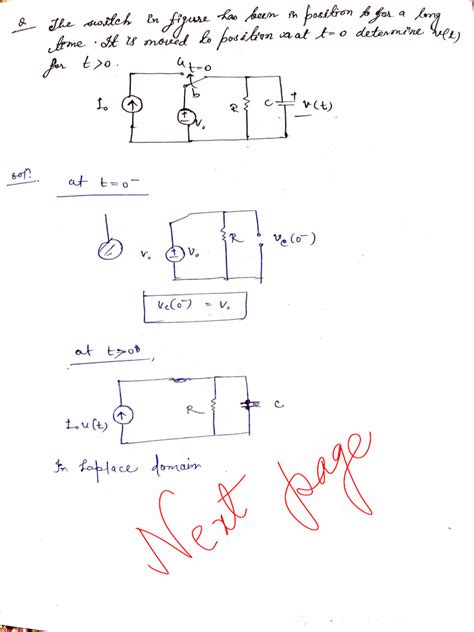 Q The switch in figure has been in position b for a long
time. It is moved to position a at t=0 determine v(t)
for t>0.
a t=0
b
I₀
V₀
R
C
+
v(t)
solⁿ.
at t=0⁻
V₀
V₀
R
v_c(0⁻)
v_c(0⁻) = V₀
at t>0
I₀u(t)
R
C
In Laplace domain
Next page